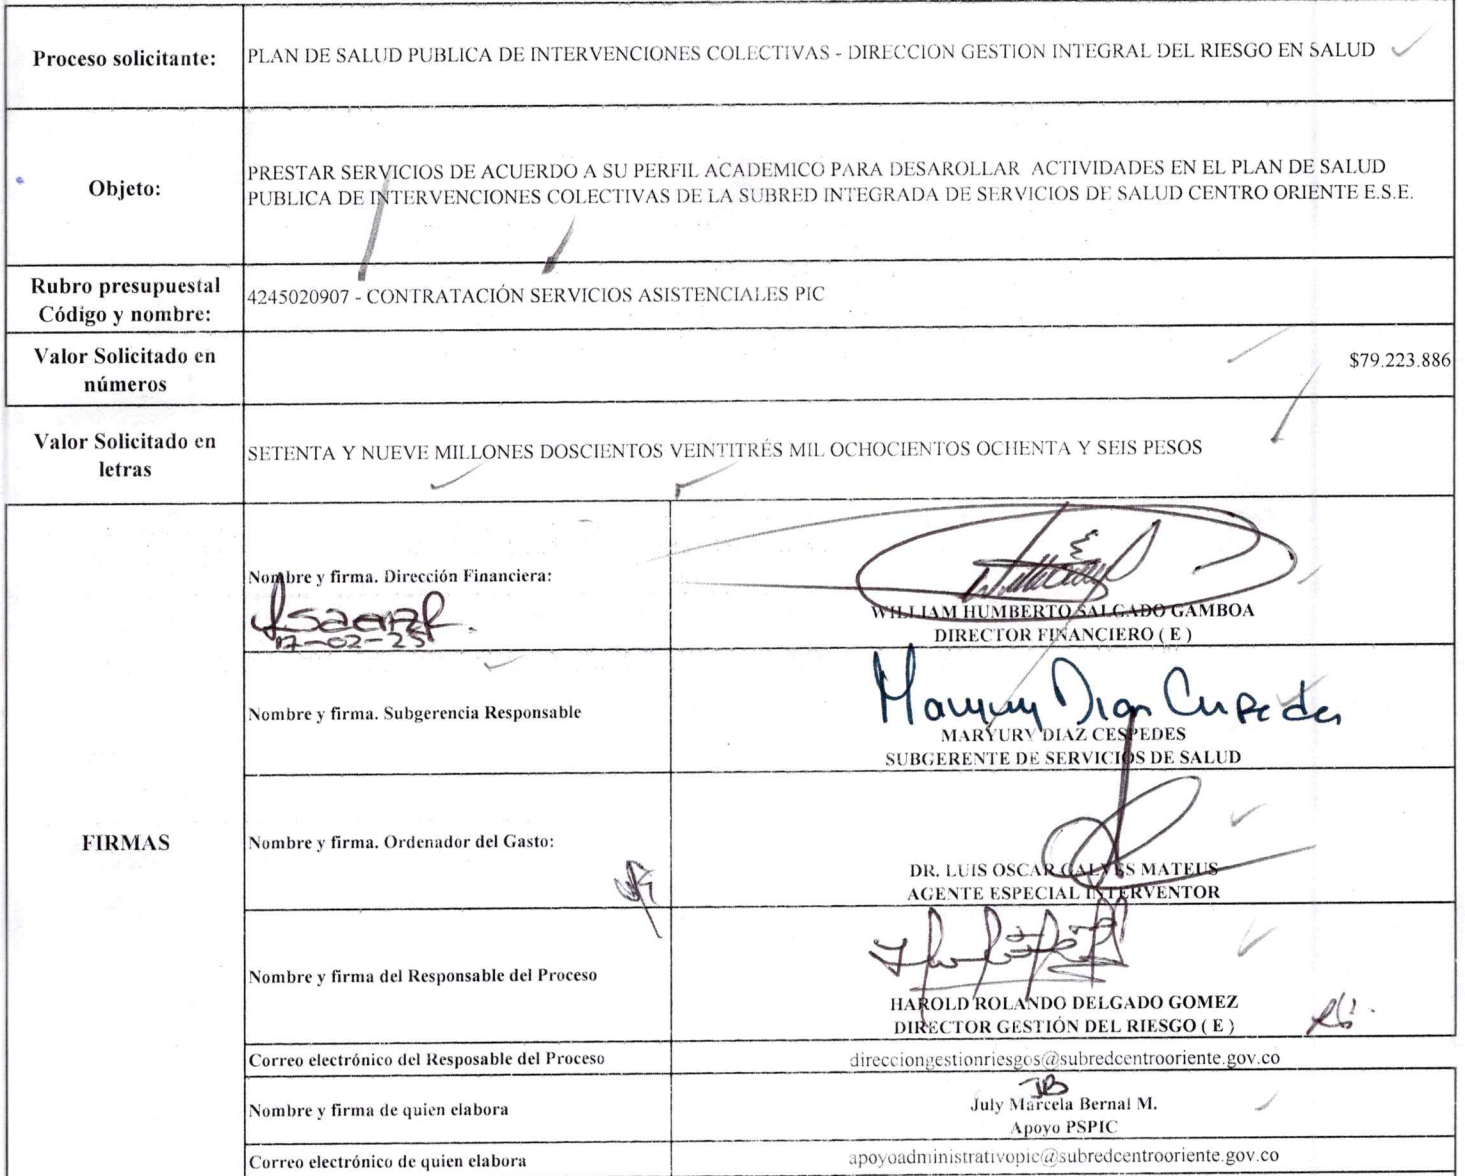 Proceso solicitante:
PLAN DE SALUD PUBLICA DE INTERVENCIONES COLECTIVAS - DIRECCION GESTION INTEGRAL DEL RIESGO EN SALUD
Objeto:
PRESTAR SERVICIOS DE ACUERDO A SU PERFIL ACADEMICO PARA DESAROLLAR ACTIVIDADES EN EL PLAN DE SALUD
PUBLICA DE INTERVENCIONES COLECTIVAS DE LA SUBRED INTEGRADA DE SERVICIOS DE SALUD CENTRO ORIENTE E.S.E.
Rubro presupuestal
Código y nombre:
4245020907 - CONTRATACIÓN SERVICIOS ASISTENCIALES PIC
Valor Solicitado en
números
$79.223.886
Valor Solicitado en
letras
SETENTA Y NUEVE MILLONES DOSCIENTOS VEINTITRÉS MIL OCHOCIENTOS OCHENTA Y SEIS PESOS
FIRMAS
Nombre y firma. Dirección Financiera:
17-02-25
WILLIAM HUMBERTO SALGADO GAMBOA
DIRECTOR FINANCIERO ( E )
Nombre y firma. Subgerencia Responsable
Maryury Diaz Cespedes
MARYURY DIAZ CESPEDES
SUBGERENTE DE SERVICIOS DE SALUD
Nombre y firma. Ordenador del Gasto:
DR. LUIS OSCAR GALVES MATEUS
AGENTE ESPECIAL INTERVENTOR
Nombre y firma del Responsable del Proceso
HAROLD ROLANDO DELGADO GOMEZ
DIRECTOR GESTIÓN DEL RIESGO ( E )
Correo electrónico del Resposable del Proceso
direcciongestionriesgos@subredcentrooriente.gov.co
Nombre y firma de quien elabora
JB
July Marcela Bernal M.
Apoyo PSPIC
Correo electrónico de quien elabora
apoyoadministrativopic@subredcentrooriente.gov.co